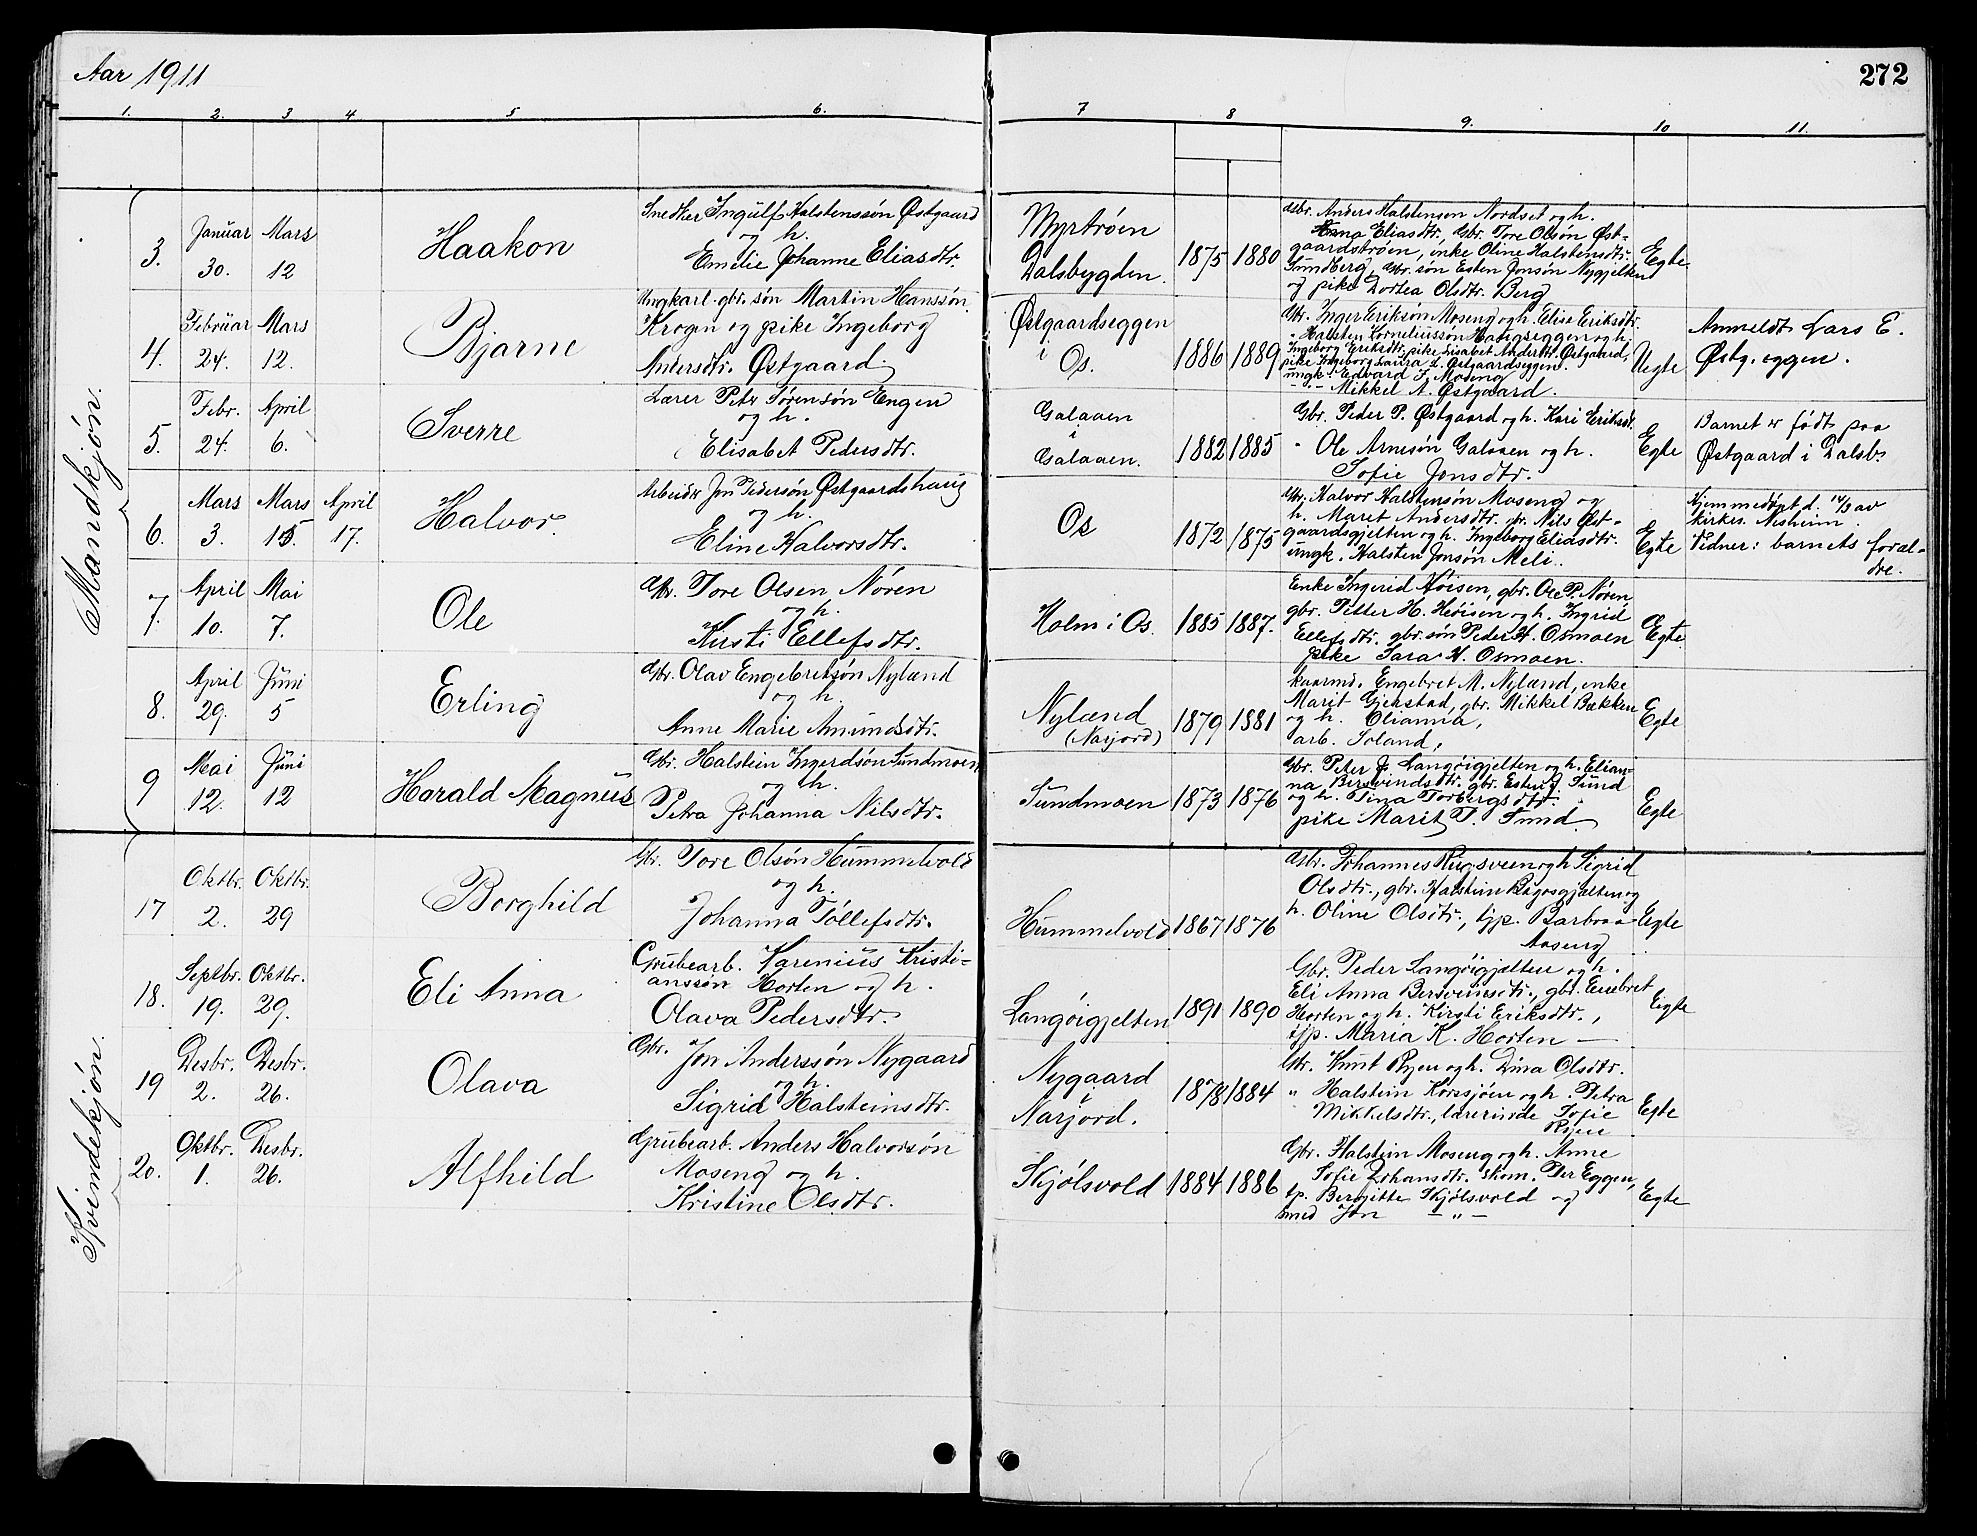 Aar 1911
272
1. 2. 3 4. 5 6. 7 8 9. 10 11.
Mandkjön.
3. Januar 30. Mars 12
Haakon
Snedker Ingulf Halstenssön Östgaard
og h.
Emelie Johanne Eliasdtr.
Myrtröen
Dalsbygden.
1875 1880
Gbr. Anders Halstensen Nordset og h.
Anna Eliasdtr. Gbr. Tore Olsön Öst-
gaardströen, enke Oline Halstensdtr.
Sundberg, Gbr. sön Esten Jonsön Nygjelten
og pike Dortea Olsdtr. Berg
Egte
4. Februar 24. Mars 12.
Bjarne
Ungkarl gbr. sön Martin Hanssön
Krogen og pike Ingeborg
Andersdtr. Östgaard.
Östgaardseggen
i
Os.
1886 1889
Gbr. Inger Eriksön Moseng og h. Elise Eriksdtr.
" Halsten Korneliussön Haugseggen og h.
Ingeborg Eriksdtr, pike Lisabet Andersdtr. Östgaard,
pike Ingeborg Laura L. Östgaardseggen.
ungk. Edvard J. Moseng
- " - Mikkel A. Östgaard.
Uegte
Anmeldt Lars E.
Östg. eggen.
5. Febr. 24. April 6.
Sverre
Lærer Petr Sörensön Engen
og h.
Elisabet Pedersdtr.
Galaaen
i
Galaaen.
1882 1885
Gbr. Peder P. Östgaard og h. Kari Eriksdt.
" Ole Arnesön Galaaen og h.
Sofie Jonsdtr.
Egte
Barnet er födt paa
Östgaard i Dalsb.
6. Mars 3. Mars 15. April 17.
Halvor.
Arbeider Jon Pedersön Östgaardshaug
og h.
Eline Halvorsdtr.
Os
1872 1875
Gbr. Halvor Halstensön Moseng og
h. Maret Andersdtr. gbr. Nils Öst-
gaardsgjelten og h. Ingeborg Eliasdtr.
ungk. Halsten Jonsön Meli.
Egte
Hjemmedöpt d. 14/3 av
kirkes. Nesheim.
Vidner: barnets foræl-
dre.
7. April 10. Mai 7.
Ole
Gbr. Tore Olsen Nören
og h.
Kirsti Ellefsdtr.
Holm i Os.
1885 1887.
Enke Ingerid Höisen, gbr. Ole P. Nören
gbr. Petter H. Höisen og h. Ingrid
Ellefsdtr. gbr. sön Peder H. Osmoen
pike Sara H. Osmoen.
Egte.
8. April 29. Juni 5
Erling
Gbr. Olav Engebretsön Nylænd
og h.
Anne Marie Amundsdtr.
Nylænd
(Narjord)
1879 1881
kaarmd. Engebret M. Nylænd, enke
Marit Gjelstad, gbr. Mikkel Bækken
og h. Olianna,
arb. Soland,
Egte
9 Mai 12. Juni 12
Harald Magnus
Gbr. Halstein Ingerdsön Sundmoen
og h.
Petra Johanna Nilsdtr.
Sundmoen
1873 1876
Gbr. Peter J. Langöigjelten og h. Elian-
na Bersvindsdtr. gbr. Esten J. Sund
og h. Tina Torbergsdtr.
pike Marit T. Sund.
Egte
Kvindekjön.
17 Oktbr. 2. Oktbr. 29
Borghild
Gbr. Tore Olsön Hummelvold
og h.
Johanna Töllefsdtr.
Hummelvold
1867 1876
Gbr. Johannes Rugsveen og h. Sigrid
Olsdtr., gbr. Halstein Rugsgjelten og
h. Oline Olsdtr., tjp. Barbraa
Aaseng
Egte
18. Septbr. 19. Oktbr. 29.
Eli Anna
Grubearb. Karenius Kristi-
anssön Horten og h.
Olava Pedersdtr.
Langöigjelten
1891 1890
Gbr. Peder Langöigjelten og h.
Eli Anna Bersveinsdtr., gbr. Eenbret
Horten og h. Kirsti Eriksdtr.,
tjp. Maria K. Horten —
Egte
19 Desbr. 2. Desbr. 26.
Olava
Gbr. Jon Anderssön Nygaard
og h.
Sigrid Halsteinsdtr.
Nygaard
i
Narjord.
1878 1884
Gbr. Knut Ryen og h. Dina Olsdtr.
" Halstein Korssjöen og h. Petra
Mikkelsdtr, lærerinde Sofie
Ryen
Egte
20. Oktbr. 1. Desbr. 26.
Alfhild
Grubearb. Anders Halvorsön
Moseng og h.
Kristine Olsdtr.
Skjölsvold
1884 1886
Gbr. Halstein Moseng og h. Anne
Sofie Johansdtr. skom. Per Eggen,
tp. Bergitte Skjölsvold og
smed Jon — " —
Egte